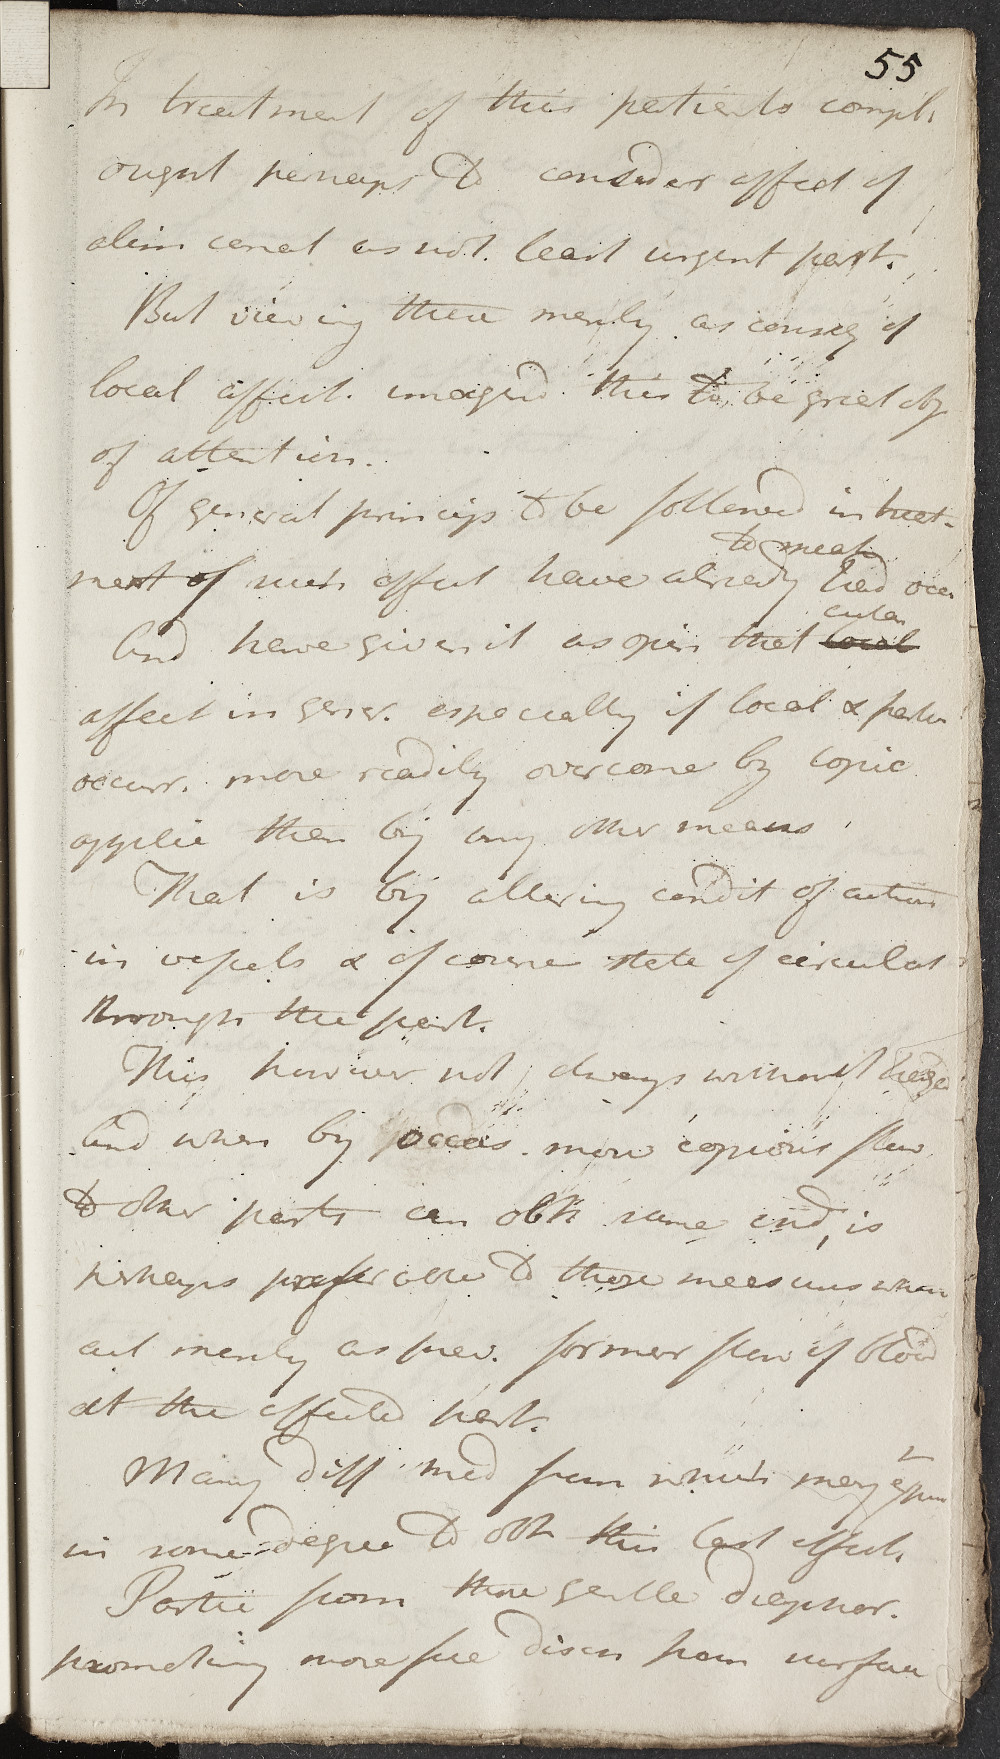 55
In treatment of this patients compl.
ought perhaps to consider affect of
alim canal as not least urgent part.
But viewing these merely as conseq of
local affect. imagined this to be great obj
of attention.
Of general princips to be followed in treat-
to meat
ment of such affect have already had occa
cutan
And have given it as opin that local
affect in gener. especially if local & partic
occurr. more readily overcome by topic
applic than by any other means.
That is by altering condit of action
in vessels & of course state of circulat
through the part.
This however not always without
And when by occas. more copious flow
to other parts can obtn same end, is
perhaps preferable to those measures which
act merely as prev. former flow of blood
at the affected part.
Many diff med from which may expec
in some degree to obtn this last effect.
Partic from those gentle diaphor.
promoting more free disch from surface